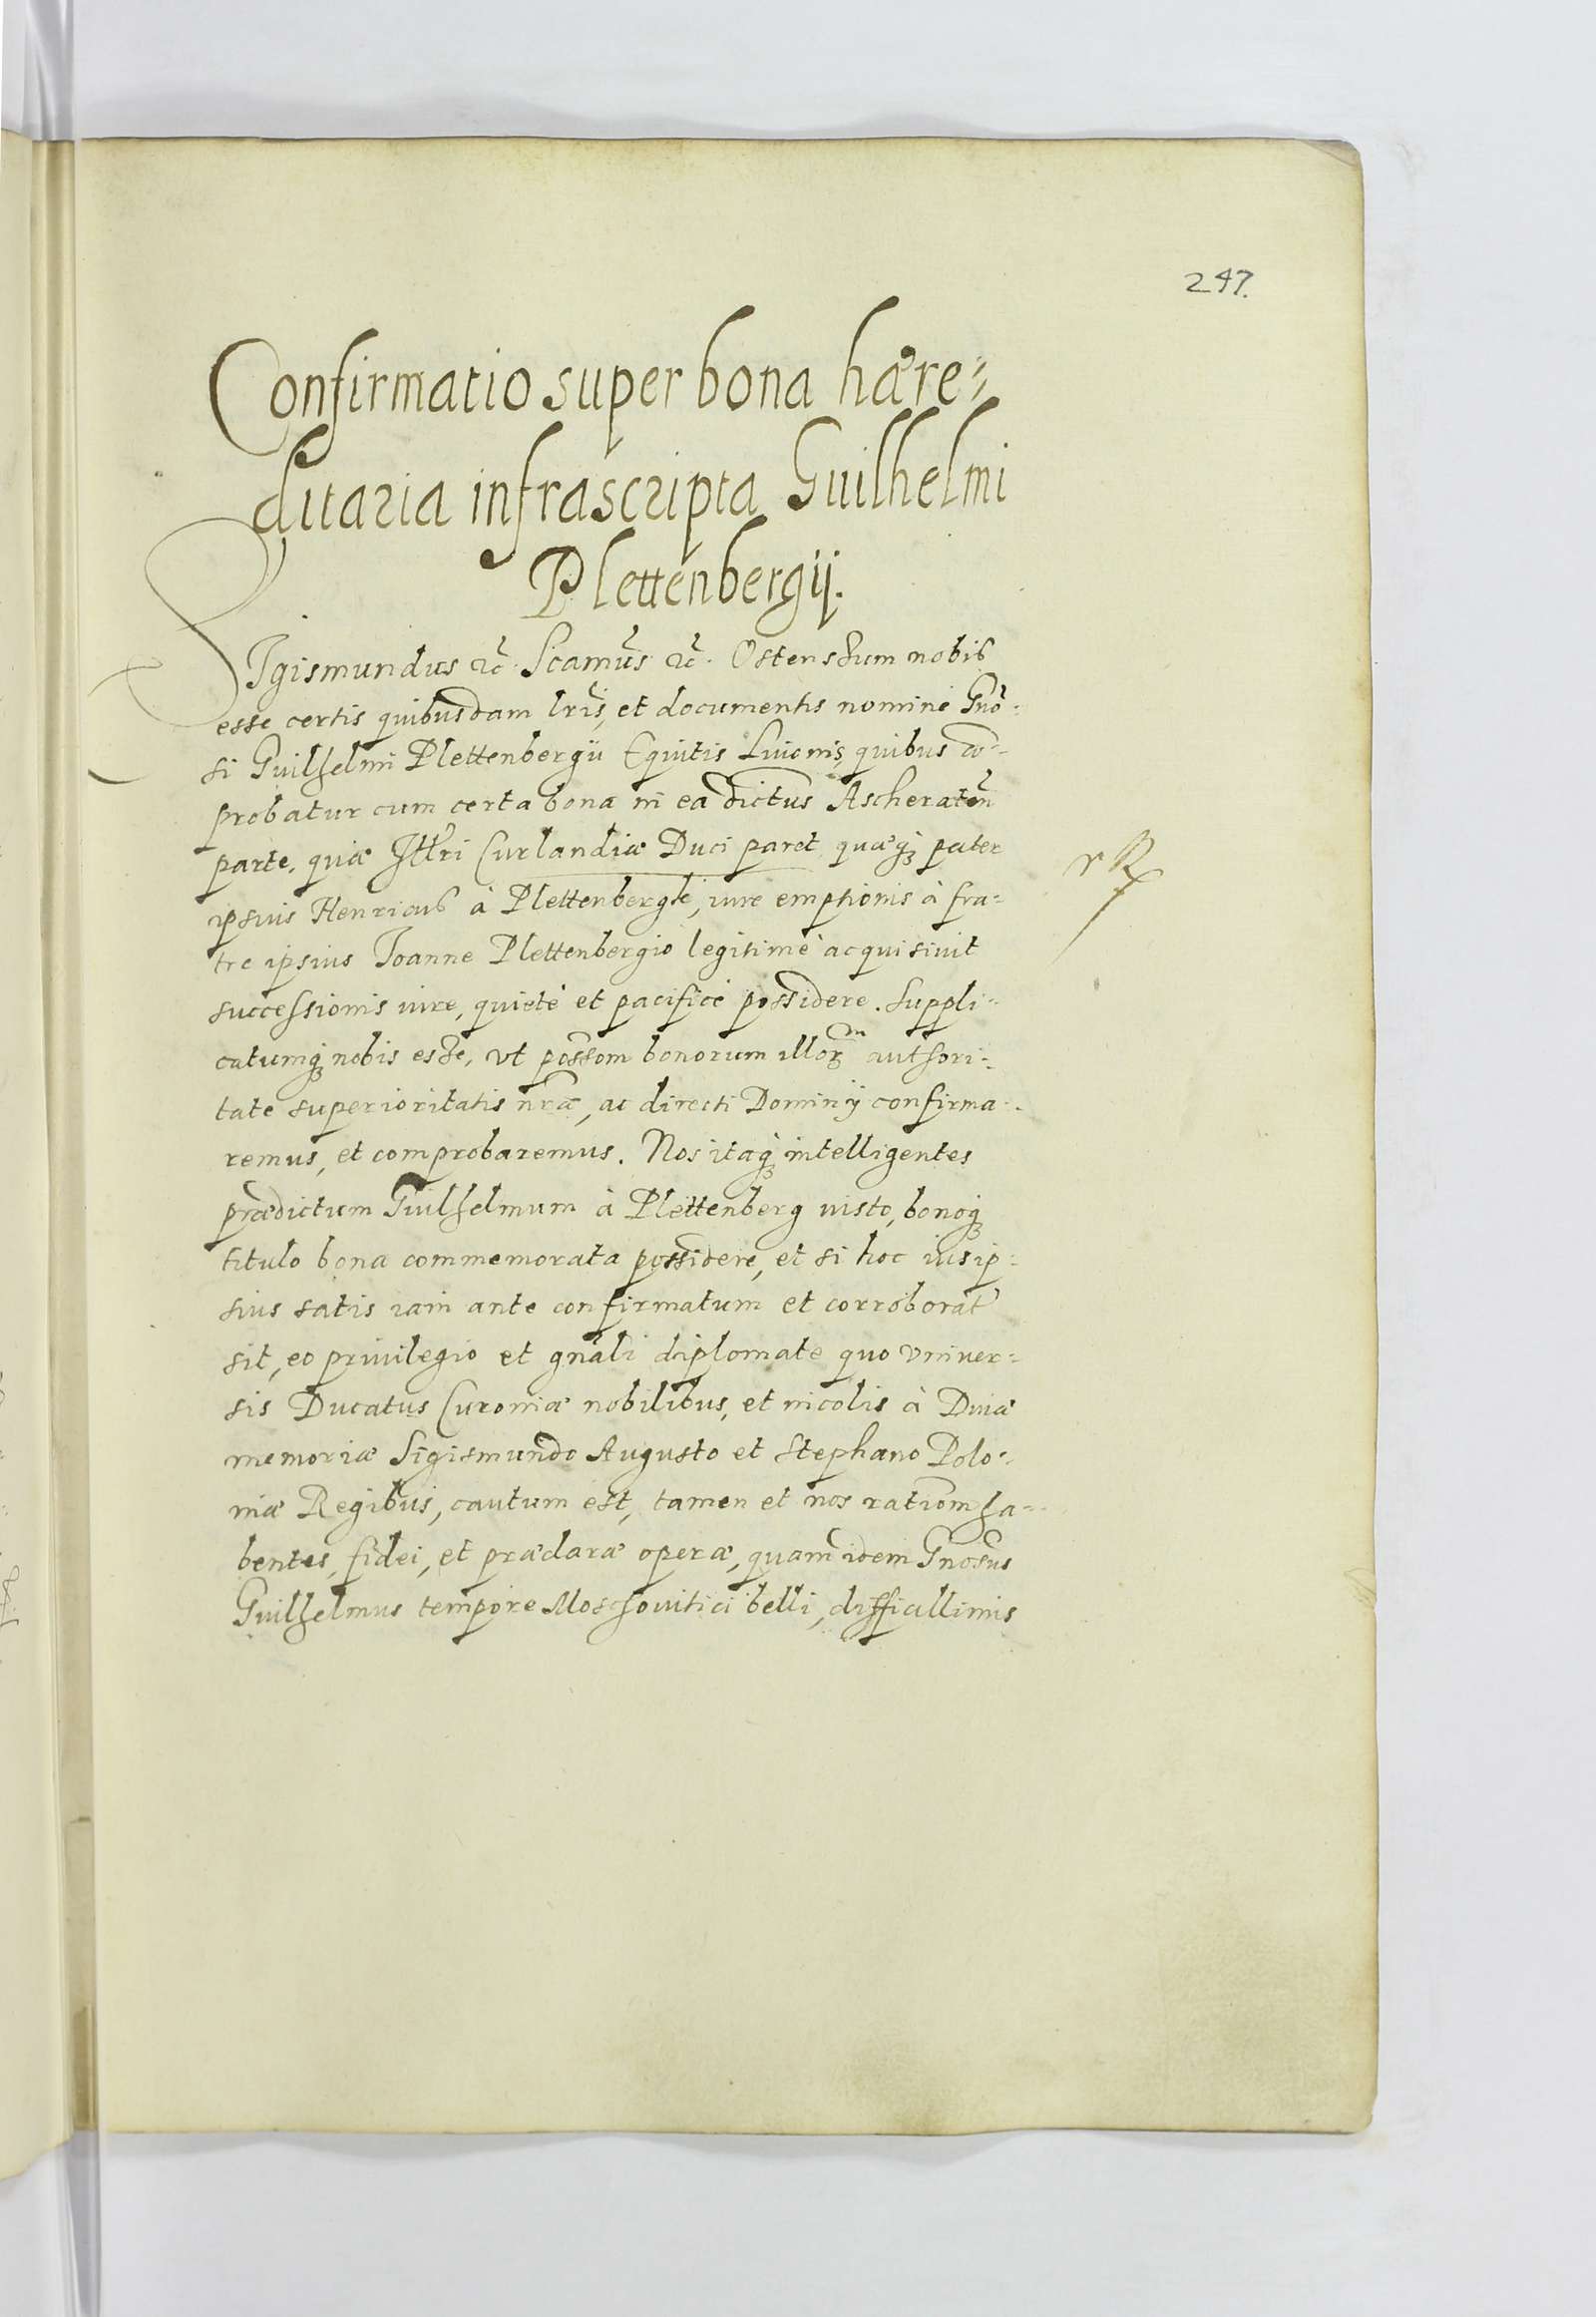 247.
Confirmatio super bona hære=
ditaria infrascripta Guilhelmi
Plettenbergij.
Sigismundus &c. Scamus &c. Ostensum nobis
esse certis quibusdam lris, et documentis nomine Gno=
si Guilhelmi Plettenbergii Equitis Livonis, quibus co=
probatur cum certa bona in ea dictus Ascheraten
parte, quæ Illri Curlandiæ Duci paret quæq; pater
ipsius Henricus à Plettenbergk, iure emptionis à fra=
tre ipsius Joanne Plettenbergio legitimè acquisivit
successionis iure, quietè et pacificè possidere. Suppli=
catumq; nobis esse, vt possom bonorum illorm authori=
tate superioritatis nræ, ac directi Dominij confirma=
remus, et comprobaremus. Nos itaq; intelligentes
prædictum Guilhelmum à Plettenberg iusto, bonoq;
titulo bona commemorata possidere, et si hoc ius ip=
sius satis iam ante confirmatum et corroborat
sit, eo privilegio et gnali diplomate quo vniver=
sis Ducatus Curoniæ nobilibus, et incolis à Divæ
memoriæ Sigismundo Augusto et Stephano Polo=
niæ Regibus, cautum est, tamen et nos rationm ha=
bentes, fidei, et præclaræ operæ, quam idem Gnosus
Guilhelmus tempore Moschovitici belli, difficillimis